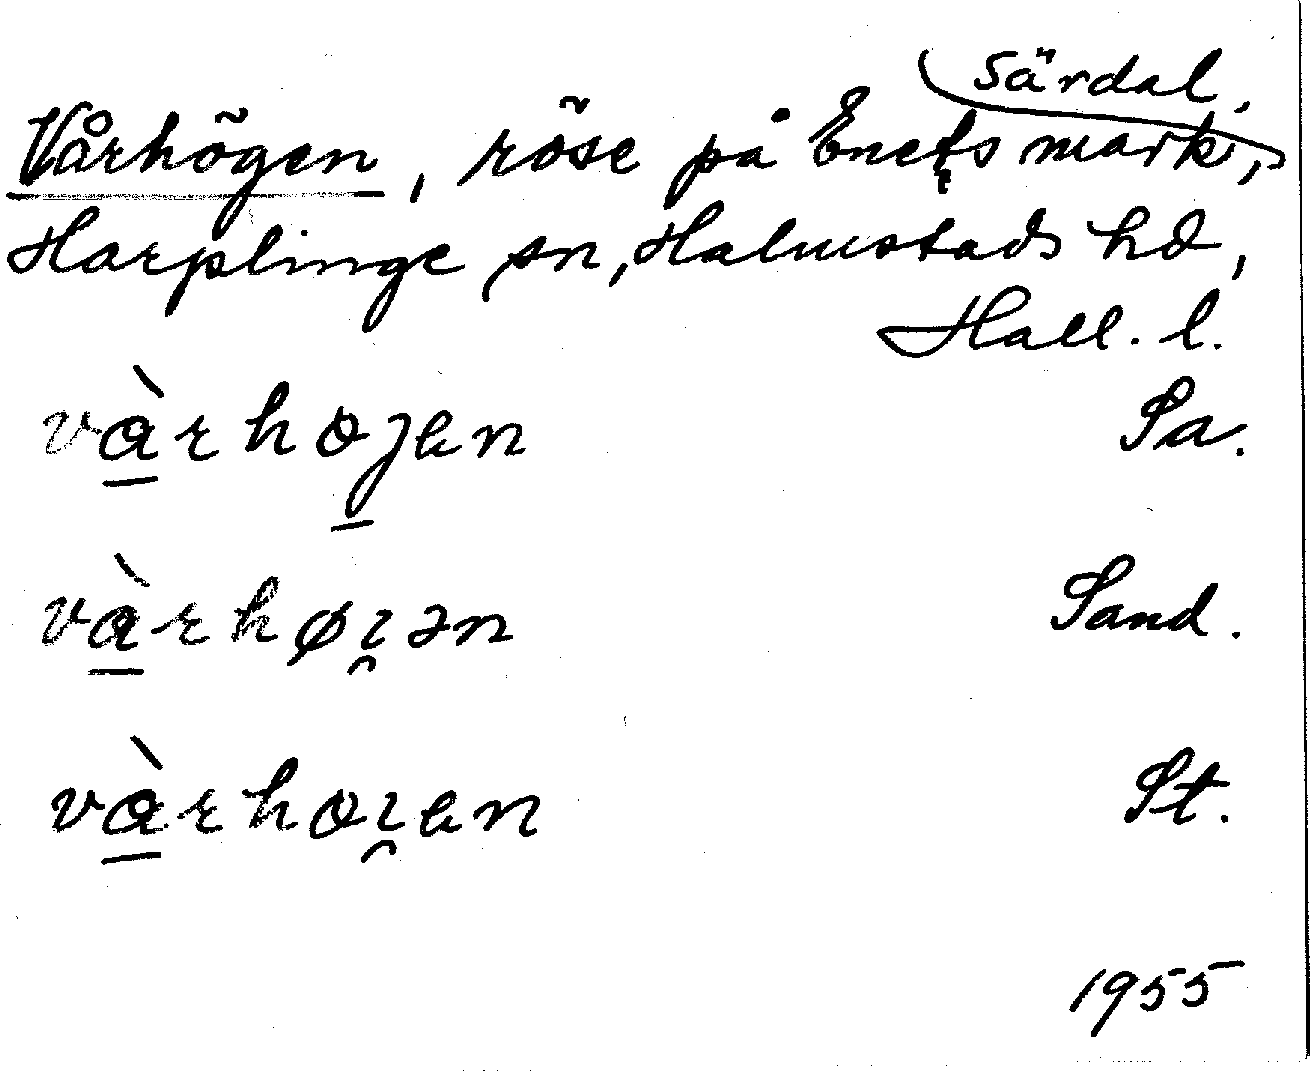 Särdal,
Vårhögen, röse på Enets mark,
Harplinge sn, Halmstads hd,
Hall. l.
vàrhojen Sa.
vàrhøi̯ən Sand.
vàrhoi̯en St.
1955